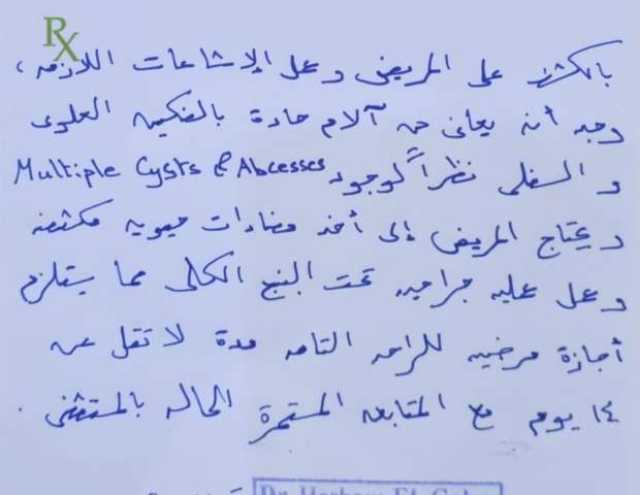 Rx
بالكشف على المريض وعمل الإشاعات اللازمه،
وجد أنه يعانى من آلام حادة بالفكين العلوى
و السفلى نظراً لوجود Multiple Cysts & Abcesses
ويحتاج المريض إلى أخذ مضادات حيويه مكثفه
وعمل عمليه جراحيه تحت البنج الكلى مما يستلزم
أجازة مرضيه للراحه التامه مدة لا تقل عن
١٤ يوم مع المتابعه المستمرة للحاله بالمستشفى .